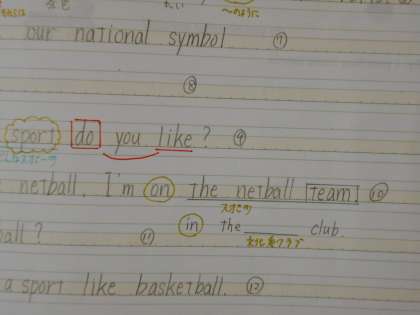 金色 たい ～のように
our national symbol ⑦
⑧
sport do you like? ⑨
netball. I'm on the netball team! ⑩
スポーツ
ball? ⑪ in the ______ club.
文化系クラブ
a sport like basketball. ⑫